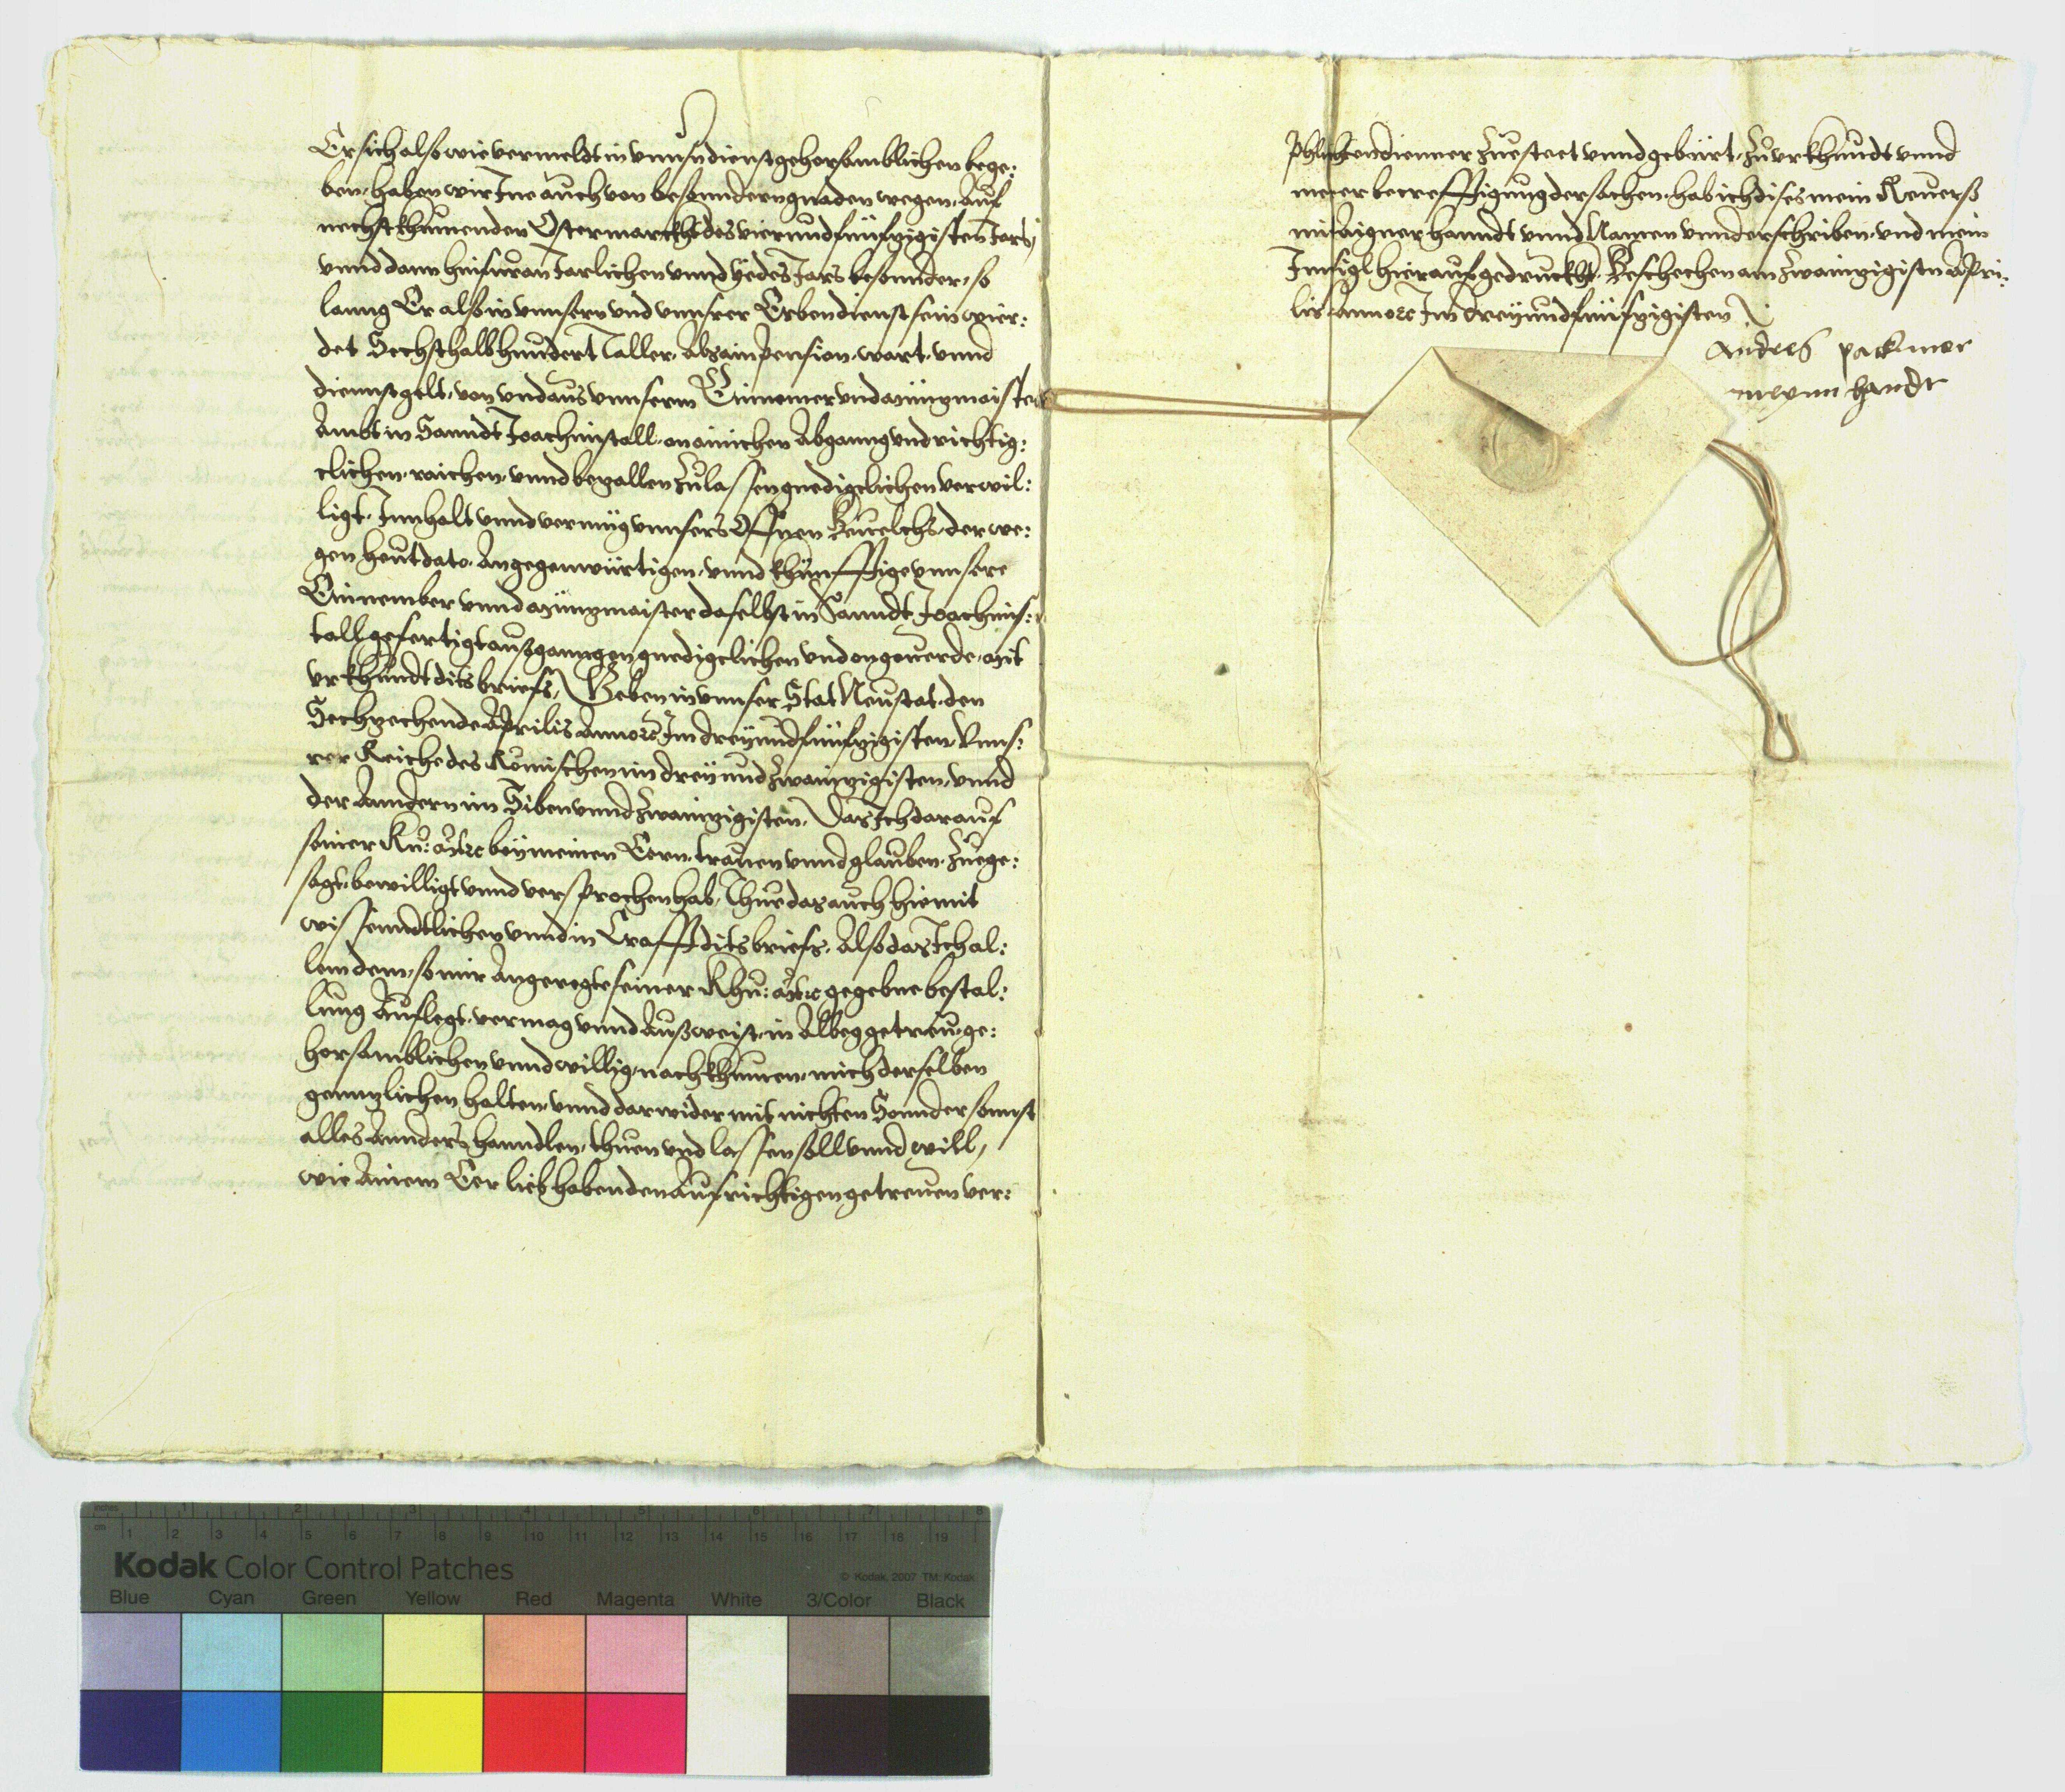 Er sich also wie vermeldt in unnsn dienst gehorsamblichen bege:
ben, haben wir Ine auch von besonndern gnaden wegen, Auf
nechstkhumenden Ostermarckht des vierundfünfzigisten Jars,
unnd dann hinfuron Jarlichen unnd yedes Jars besonnder, so
lanng Er also in unnsern und unnserer Erben dienst sein wier:
det Sechsthalbhundert Taller, Als ain Pension, wart, unnd
dienstgelt, von und aus unnserm Einnemer und Münzmaister
Ambt in Sanndt Joachimstall, on ainichen Abganng und richtig:
clichen, raichen, unnd bezallen zulassen gnedigclichen verwil:
ligt, Innhalt unnd vermüg unnsers Offnen Beuelchs, der we:
gen heut dato, An gegenwürtigen, unnd khünfftige unnsere
Einnember unnd Münzmaister daselbst in Sanndt Joachims:
tall gefertigt außganngen gnedigclichen und ongeuerde, Mit
urkhundt dits briefs, Geben in unnser Stat Neustat, den
Sechzechende Aprilis Anno etc Im dreyundfünfzigisten, Unns:
rer Reiche des Römischen im dreyundzwainzigisten, unnd
der Anndern im Siben unnd zwainzigisten, Das Ich darauf
seiner Ku: Mt etc bey meinen Eern, trauen unnd glauben, zuege:
sagt, bewilligt unnd versprochen hab, Thue das auch hiemit
wissenndtlichen unnd in Crafft dits briefs, Also das Ich al:
lem dem, so mir Angeregte seiner Khu: Mt etc gegebne bestal:
lung Auflegt, vermag unnd Außweist, in Albeg getreu, ge:
horsamblichen unnd willig, nachkhumen, mich derselben
genntzlichen halten, unnd darwider mit nichten Sonnder sonnst
alles Annders hanndlen, thuen und lassen soll unnd will,
wie Ainem Eer liebhabenden Aufrichtigen getreuen ver:
phlichten dienner zuesteet unnd gebürt, Zu urkhundt unnd
merer becrefftigung der sachen, hab ich dises mein Reuerß
mit Aigner hanndt unnd Namen unnderschriben, und mein
Innsigl hierauf gedruckht, Beschechen am zwainzigistn Apri:
lis Anno etc Im dreyundfünfzigisten
Anders
meynn handt
inches 1 2 3 4 5 6 7 8
cm 1 2 3 4 5 6 7 8 9 10 11 12 13 14 15 16 17 18 19
Kodak Color Control Patches
© Kodak, 2007 TM: Kodak
Blue Cyan Green Yellow Red Magenta White 3/Color Black